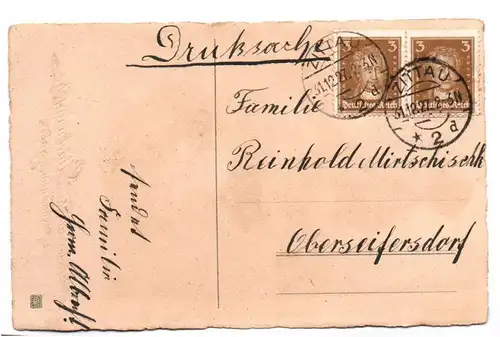 Drucksache
3 3
Deutsches Reich Deutsches Reich
ZITTAU
31.12.27.
d
ZITTAU
* 2 d
Familie
Reinhold Mirtschischk
Oberseifersdorf
sendet
Familie
Herm.